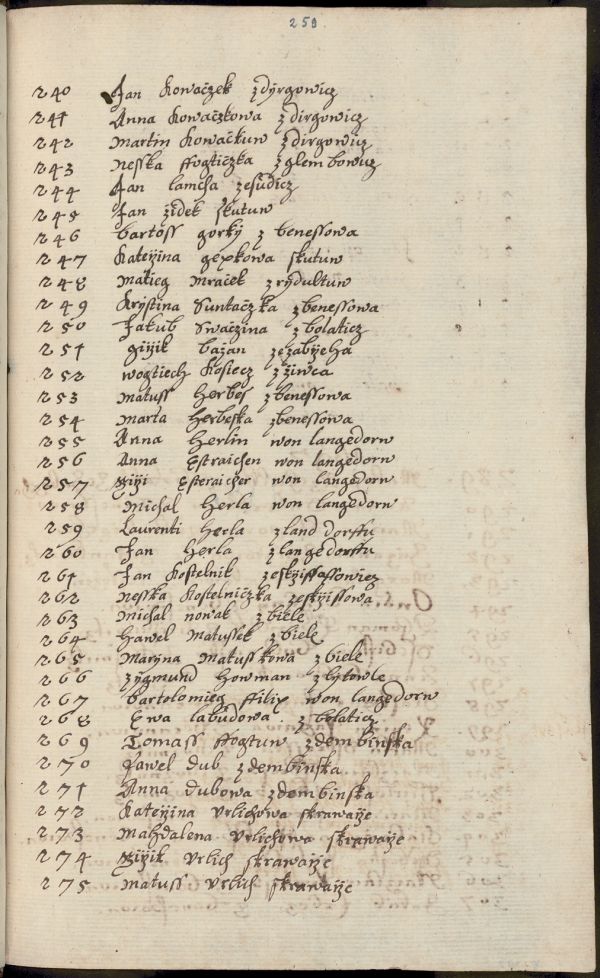 259
240 Jan Kowaczek z dyrgowicz
241 Anna Kowaczkowa z dirgowicz
242 Martin Kowačkuw z dirgowicz
243 Nesska ffogticzka z glembowicz
244 Jan lamcha zesudicz
245 Jan židek skutuw
246 bartoss gorky z benessowa
247 Kateřina gexkowa skutuw
248 Matieg Mraček z rydultuw
249 Krystina Suntaczka z benessowa
250 Jakub Swaczina z bolaticz
251 Giřik bažan
252 wogtiech Kosiecz z žiwca
253 Matuss Herbes z benessowa
254 Marta Herbeska z benessowa
255 Anna Herlin won langedorw
256 Anna Estraichen won langedorw
257 Giři Esteraicher won langedorw
258 Michal Herla won langedorw
259 Laurenti Herla z land dorffu
260 Jan Herla z langedorffu
261 Jan Kostelnik
262 Nesska Kostelniczka zeskřissowa
263 Michal nowak z biele
264 Hawel Matussek z biele
265 Maryna Matusskowa z biele
266 zygmund Howman z lytowle
267 bartolomieg ffilix won langedorw
268 Ewa labudowa z bolaticz
269 Tomass ffogtuw z dembinska
270 Pawel dub z dembinska
271 Anna dubowa z dembinska
272 Kateřina Vrlichowa skrawaře
273 Mahdalena Vrlichowa skrawaře
274 Giřik Vrlich skrawaře
275 Matuss Vrlich skrawaře